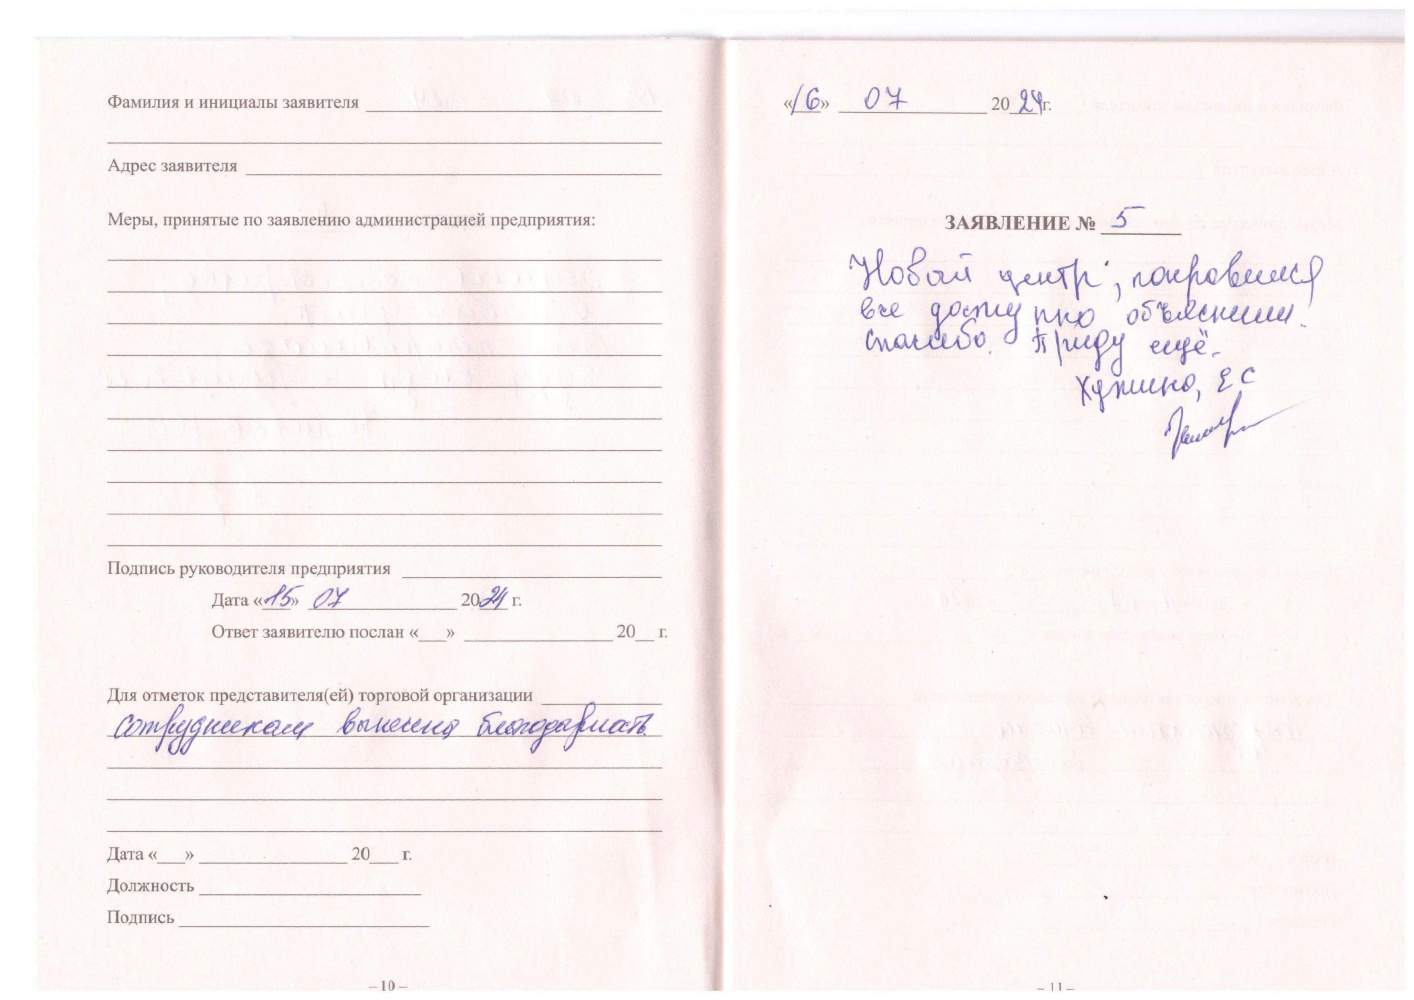 Фамилия и инициалы заявителя
Адрес заявителя
Меры, принятые по заявлению администрацией предприятия:
Подпись руководителя предприятия
Дата «15» 07 2024 г.
Ответ заявителю послан «___» 20__ г.
Для отметок представителя(ей) торговой организации
сотрудникам вынесена благодарность
Дата «___» 20___ г.
Должность
Подпись
– 10 –
«16» 07 2024г.
ЗАЯВЛЕНИЕ № 5
Новый центр, понравился
все доступно объяснили.
Спасибо. Приду ещё.
ЕС
– 11 –